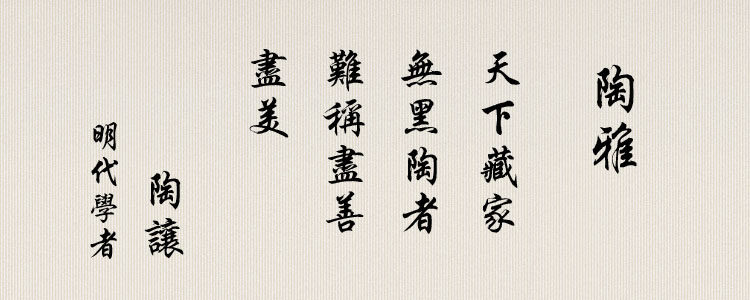 陶雅
天下藏家
無黑陶者
難稱盡善
盡美
陶讓
明代學者